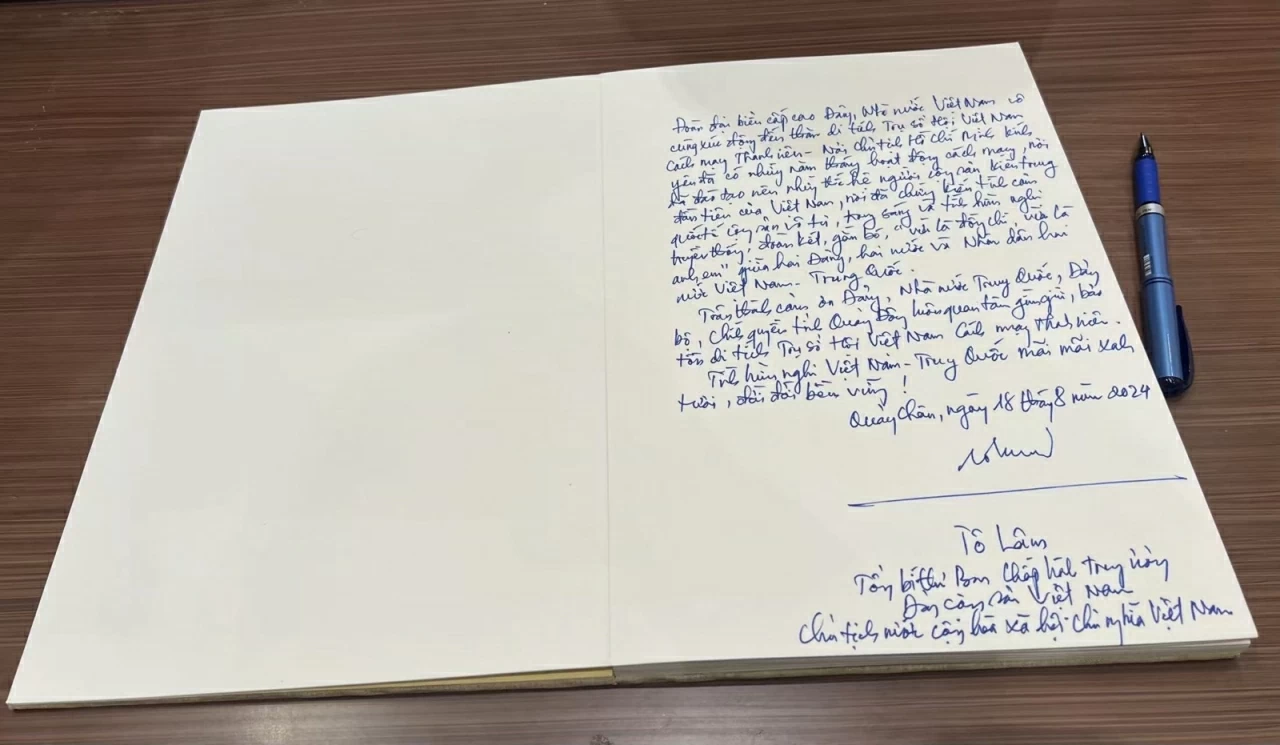 Đoàn đại biểu cấp cao Đảng, Nhà nước Việt Nam vô
cùng xúc động đến thăm di tích Trụ sở Hội Việt Nam
Cách mạng Thanh niên - Nơi Chủ tịch Hồ Chí Minh kính
yêu đã có những năm tháng hoạt động cách mạng, nơi
đã đào tạo nên những thế hệ người cộng sản kiên trung
đầu tiên của Việt Nam, nơi đã chứng kiến tình cảm
quốc tế cộng sản vô tư, trong sáng và tình hữu nghị
truyền thống, đoàn kết, gắn bó, "vừa là đồng chí, vừa là
anh em" giữa hai Đảng, hai nước và Nhân dân hai
nước Việt Nam - Trung Quốc.
Trân thành cảm ơn Đảng, Nhà nước Trung Quốc, Đảng
bộ, Chính quyền tỉnh Quảng Đông luôn quan tâm gìn giữ, bảo
tồn di tích Trụ sở Hội Việt Nam Cách mạng Thanh niên.
Tình hữu nghị Việt Nam - Trung Quốc mãi mãi xanh
tươi, đời đời bền vững!
Quảng Châu, ngày 18 tháng 8 năm 2024
Tô Lâm
Tổng bí thư Ban Chấp hành trung ương
Đảng cộng sản Việt Nam
Chủ tịch nước cộng hòa xã hội chủ nghĩa Việt Nam